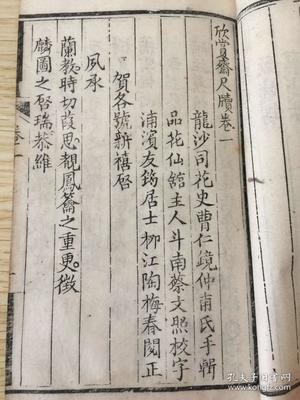 欣賞齋尺牘卷一
龍沙司花史曹仁鏡仲甫氏手輯
品花仙舘主人斗南蔡文照校字
浦濱友鈞居士柳江陶梅春閱正
賀各號新禧啓
夙承
蘭教時切葭思覩鳳籥之重更徵
麟圖之啓瑞恭維
卷一